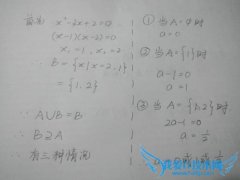 x²-3x+2=0
(x-1)(x-2)=0
x₁=1, x₂=2
∴ B={x|x=2,1}
={1,2}
∵ A∪B=B
∴ B⊇A
∴ 有三种情况
① 当A=∅时
a=0
② 当A={1}时
a-1=0
a=1
③ 当A={1,2}时
2a-1=0
a=½